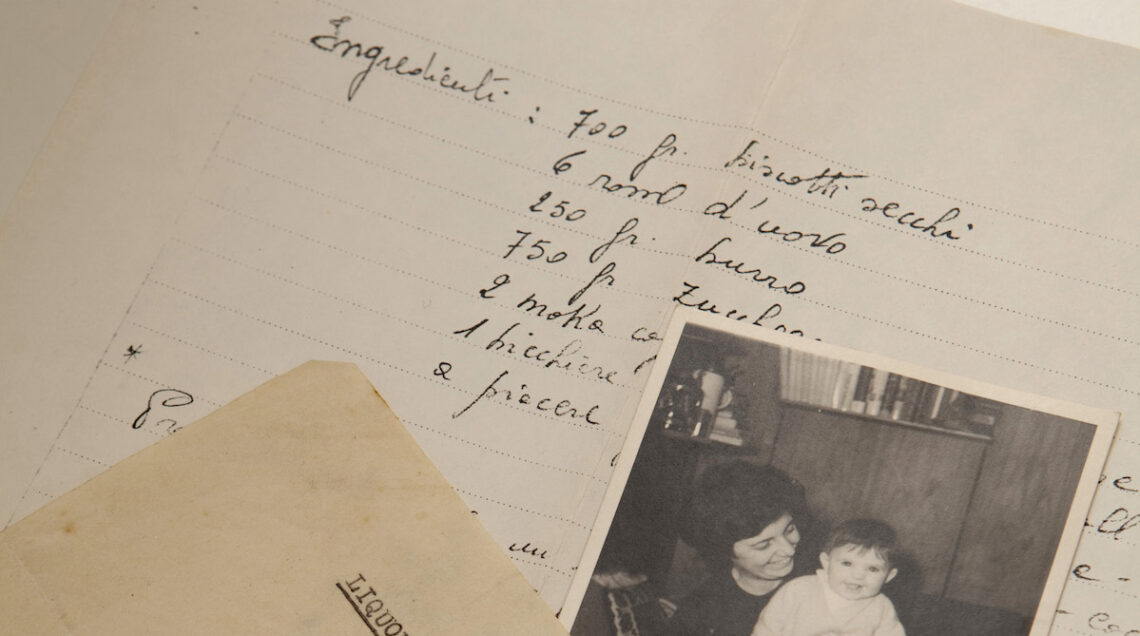 Ingredienti : 700 gr. biscotti secchi
6 rossi d'uovo
250 gr. burro
750 gr zucchero
2 moka
1 bicchiere
a piacere
*
LIQUO